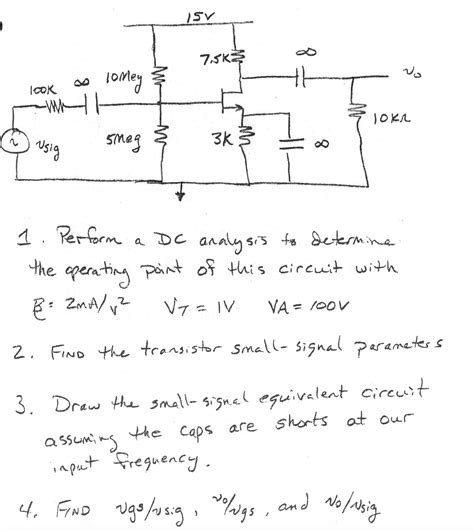 15V
7.5K
∞
10Meg
100K
∞
vo
10KΩ
vsig
5Meg
3K
∞
1. Perform a DC analysis to determine
the operating point of this circuit with
β = 2mA/v² VT = 1V VA = 100V
2. FIND the transistor small-signal parameters
3. Draw the small-signal equivalent circuit
assuming the caps are shorts at our
input frequency.
4. FIND vgs/vsig, vo/vgs, and vo/vsig